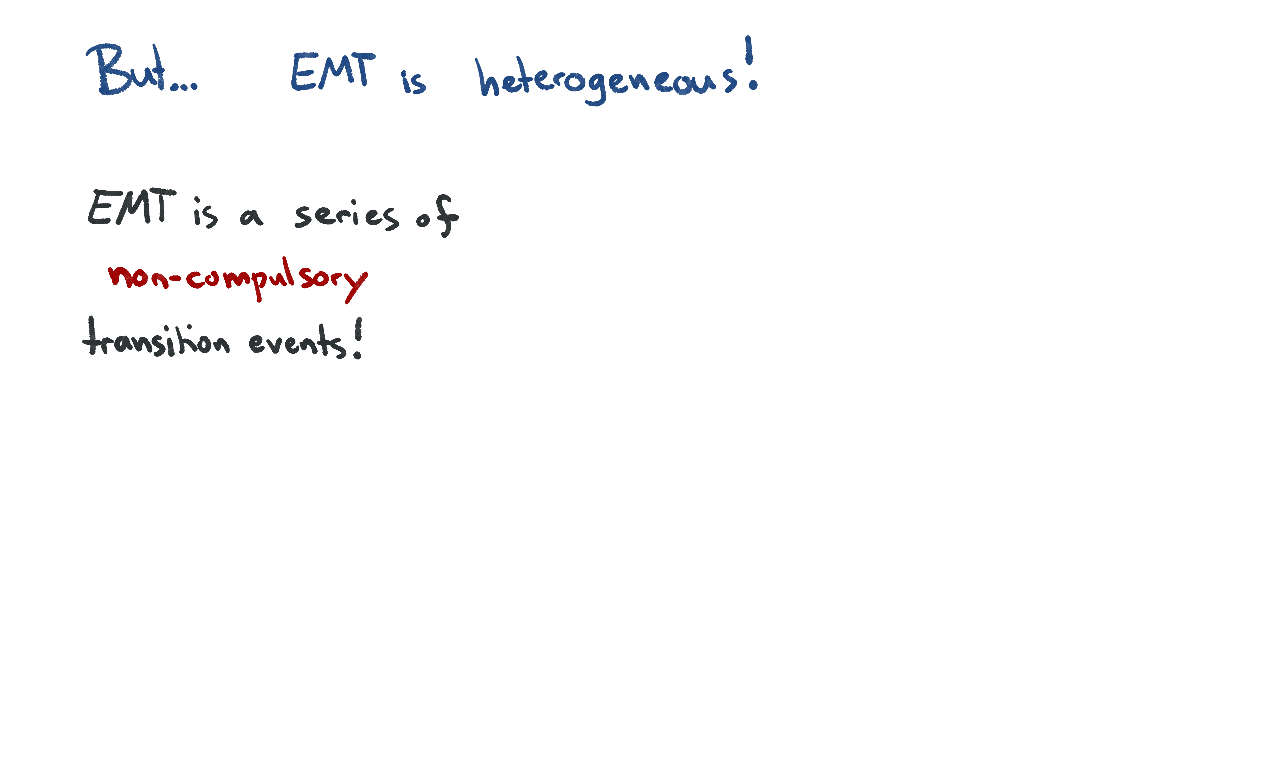 But... EMT is heterogeneous!
EMT is a series of
non-compulsory
transition events!